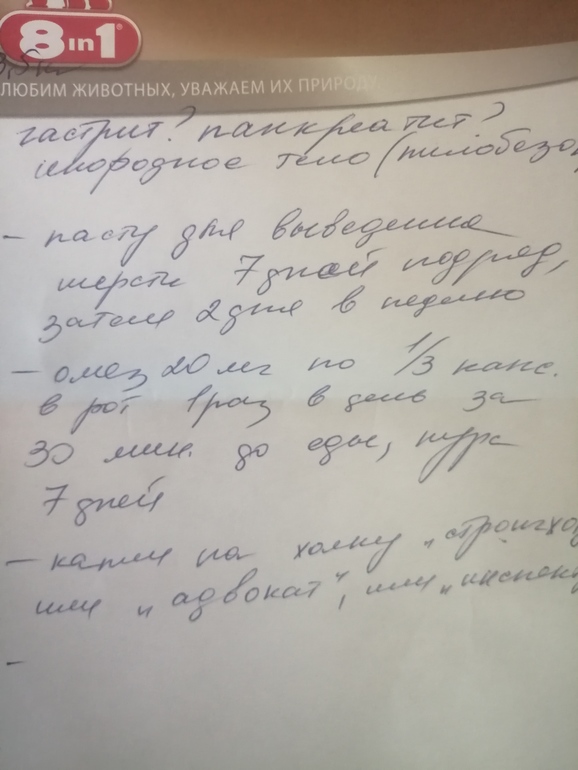 8in1
3,5 кг
ЛЮБИМ ЖИВОТНЫХ, УВАЖАЕМ ИХ ПРИРОДУ
гастрит? панкреатит?
инородное тело (пилобезо
- пасту для выведения
шерсти 7 дней подряд,
затем 2 дня в неделю
- омез 20 мг по 1/3 капс.
в рот 1 раз в день за
30 мин. до еды, курс
7 дней
- капли на холку „стронгхо
или „адвокат", или „инспек
-